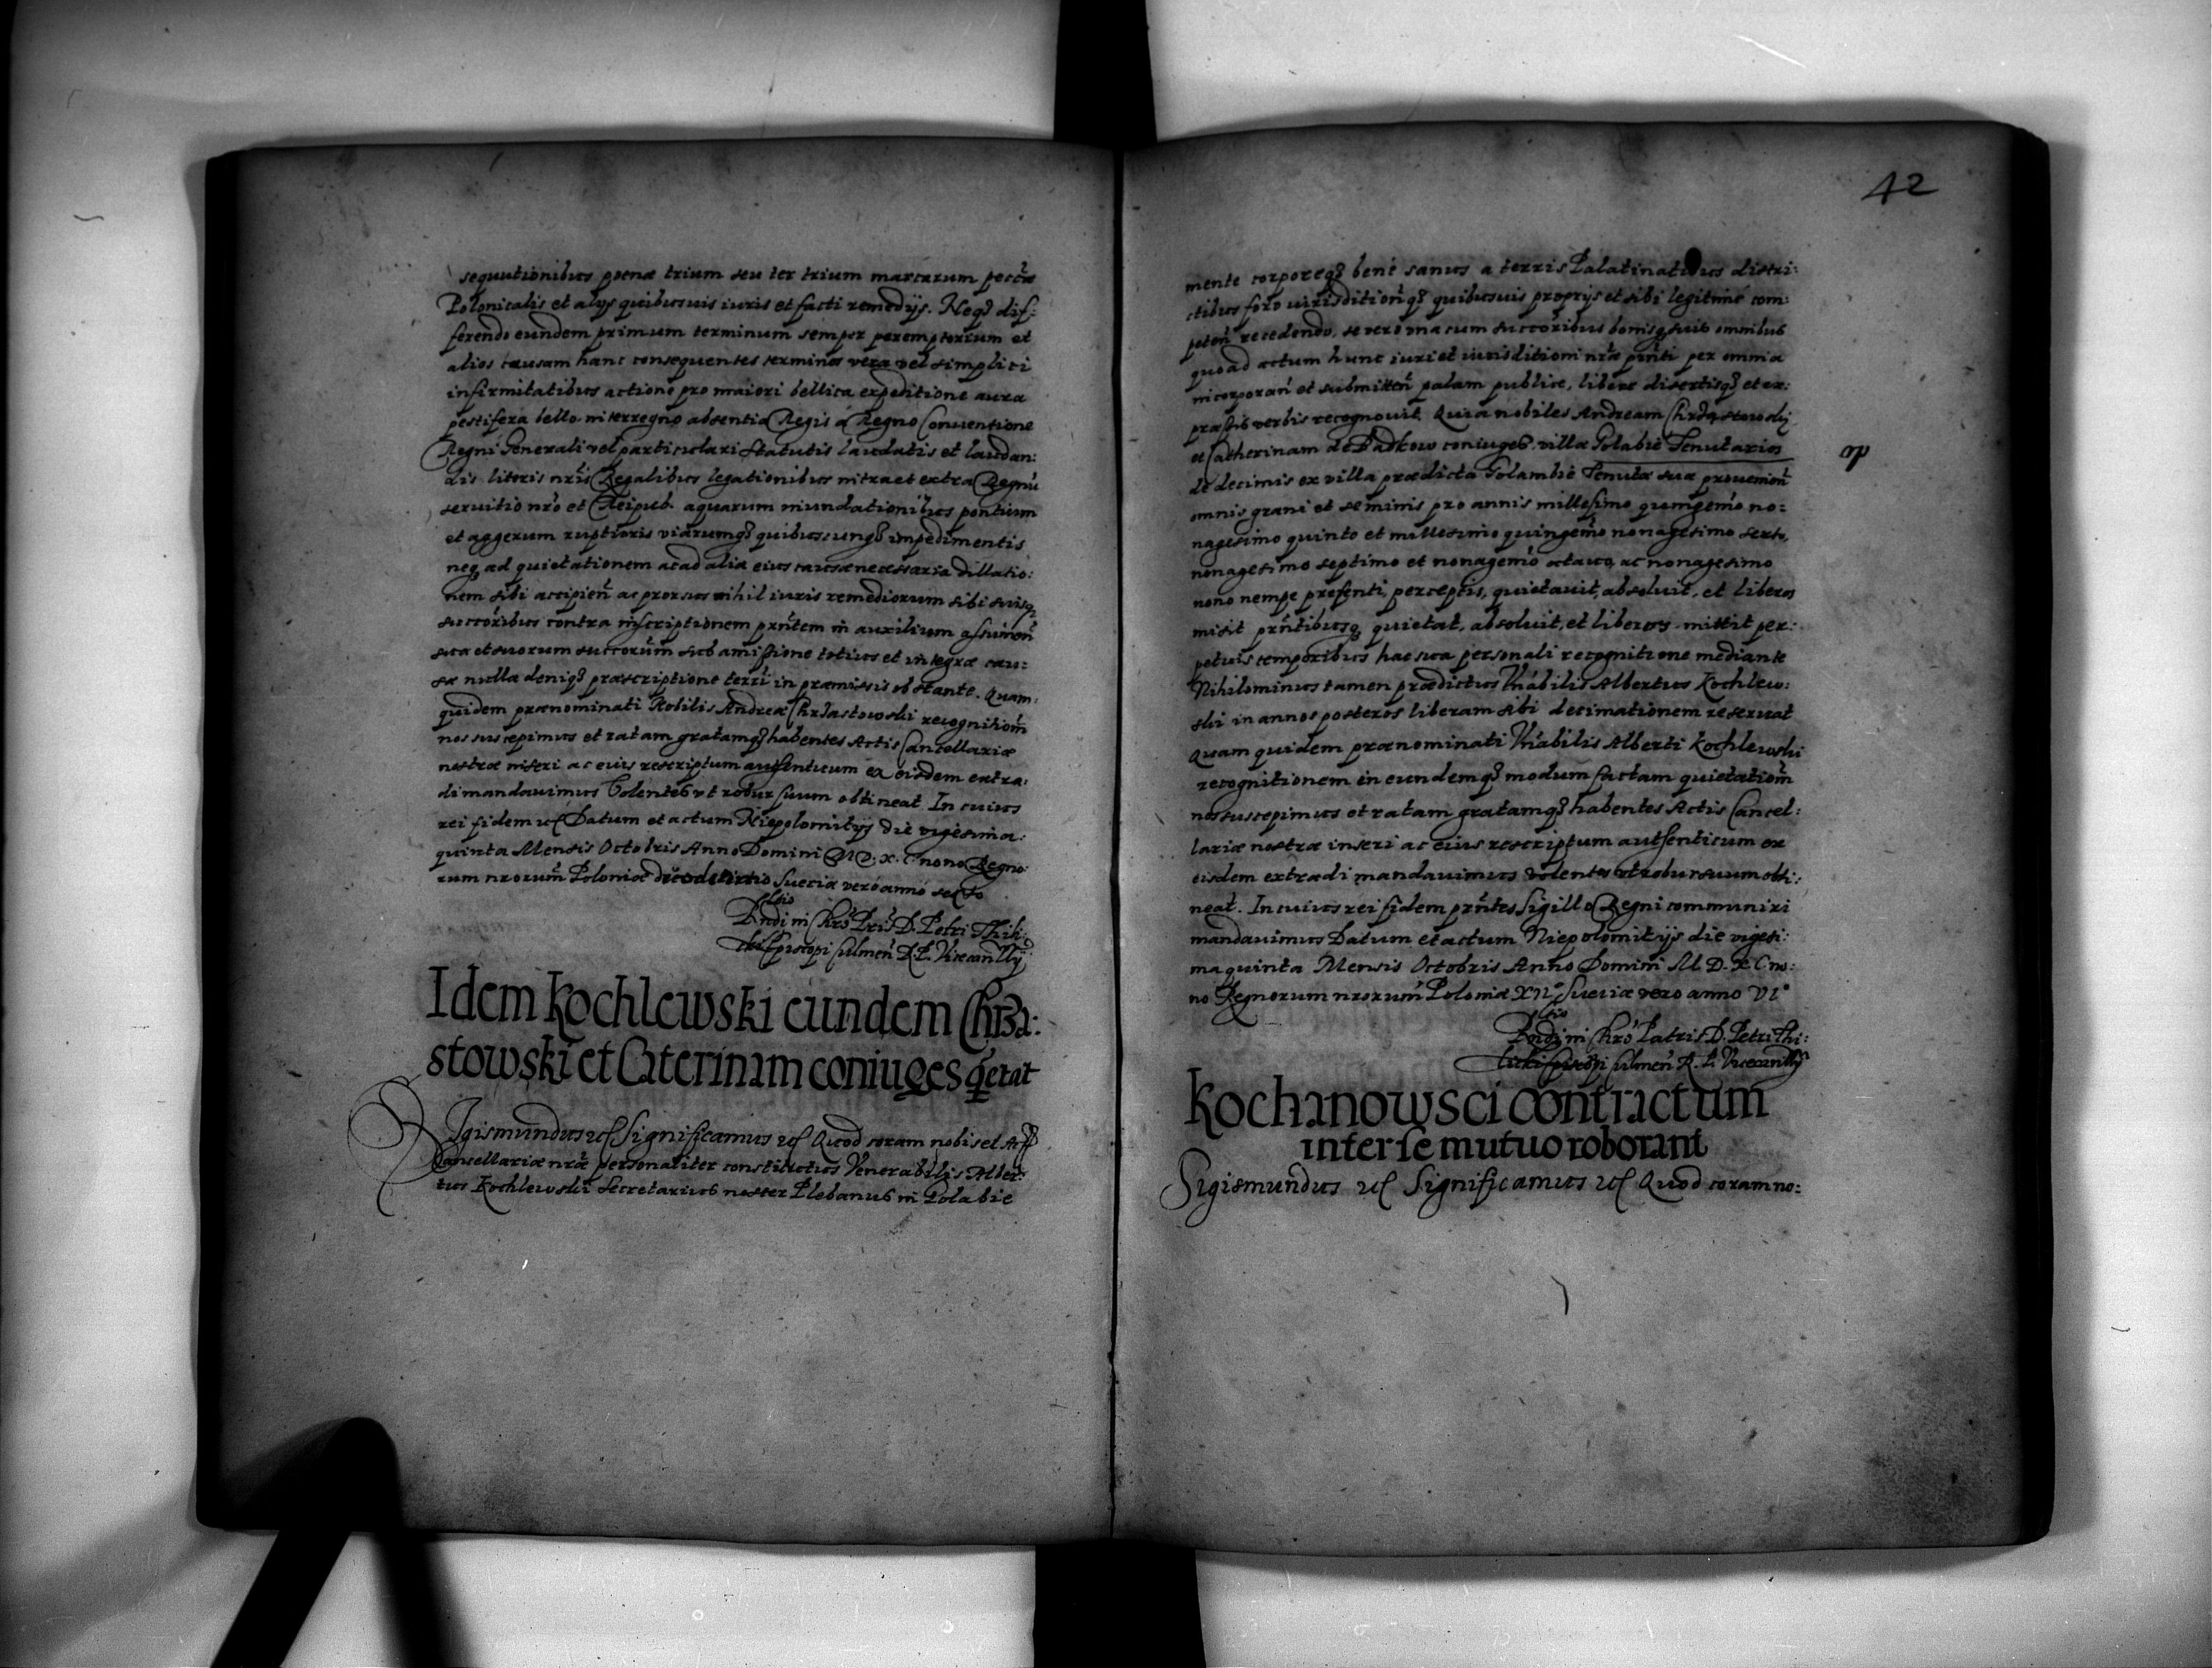 sequutionibus poenæ trium seu ter trium marcarum peccũæ
Polonicalis et alijs quibusuis iuris et facti remedijs. Neqꝫ dif:
ferendo eundem primum terminum semper peremptorium et
alios causam hanc consequentes terminos vera vel simplici
infirmitatibus actione pro maiori bellica expeditione aura
pestifera bello interregno absentia Regis à Regno Conuentione
Regni Generali vel particulari Statutis laudatis et laudan:
dis literis nr̃is Regalibus legationibus intra et extra Regnũ
seruitio nr̃o et Reipub. aquarum inundationibus pontium
et aggerum ruptioris viarumqꝫ quibuscunqꝫ impedimentis
neqꝫ ad quietationem ac ad alia eius causæ necessaria dillatio:
nem sibi accipieñ ac prorsus nihil iuris remediorum sibi suisqꝫ
succõribus contra inscriptionem prñtem in auxilium assumeñ
sua et suorum succorũm sub amissione totius et integræ cau:
sæ nulla deniqꝫ præscriptione terrĩ in præmissis obstante. Quam
quidem prænominati Nobilis Andreæ Chrzastowski recognitiom̃
nos suscepimus et ratam gratamqꝫ habentes Actis Cancellariæ
nostræ inseri ac eius rescriptum authenticum ex eisdem extra:
di mandauimus Volentes vt robur suum obtineat In cuius
rei fidem ec Datum et actum Niepolomitijs die vigesima
quinta Mensis Octobris Anno Domini M D. X. C. nono Regno
rum nrorum̃ Poloniæ Suetiæ vero anno sexto
Rndi in Chrõ Pris D. Petri Thili
cki Episcopi Culmeñ R. P. Vicecanllrij
Idem Kochlewski eundem Chrza:
stowski et Caterinam coniuges q̃etat
Sigismundus ec Significamus ec Quod coram nobis et Actis
Cancellariæ nræ̃ personaliter constitutus Venerabilis Alber:
tus Kochlewski Secretarius noster Plebanus in Golabie
42
mente corporeqꝫ bene sanus a terris Palatinatibus distri:
ctibus foro iurisditioñqꝫ quibusuis proprijs et sibi legitime com:
peteñ recedendo, se vero vna cum succõribus bonisqꝫ suis omnibus
quoad actum hunc iuri et iurisditioni nræ̃ prñti per omnia
incorporañ et submitteñ palam publice, libere disertisqꝫ et ex:
præssis verbis recognouit. Quia nobiles Andream Chrzastowski
et Catherinam de Padkow coniuges villæ Golabie Tenutarios
op
de decimis ex villa prædicta Golambie Tenutæ suæ proueniiñ
omnis grani et seminis pro annis millesimo quingem̃o no:
nagesimo quinto et millesimo quingem̃o nonagesimo sexto,
nonagesimo septimo et nonagem̃o octauo, ac nonagesimo
nono nempe presenti, perceptis, quietauit, absoluit, et liberos
misit prñtibusqꝫ quietat, absoluit, et liberos mittit per:
petuis temporibus hac sua personali recognitione mediante
Nihilominus tamen prædictus Vnãbilis Albertus Kochlew:
ski in annos posteros liberam sibi decimationem reseruat
Quam quidem prænominati Vnãbilis Alberti Kochlewski
recognitionem in eundemqꝫ modum factam quietatiom̃
nos suscepimus et ratam gratamqꝫ habentes Actis Cancel:
lariæ nostræ inseri ac eius rescriptum authenticum ex
eisdem extradi mandauimus volentes vt robur suum obti:
neat. In cuius rei fidem prñtes Sigillo Regni communiri
mandauimus Datum et actum Niepolomitijs die vigesi:
ma quinta Mensis Octobris Anno Domini M. D. X C no:
no Regnorum nrorum̃ Poloniæ XII° Sueciæ vero anno VI°
Rndi in Chrõ Patris D. Petri Thi:
licki Episcopi Culmeñ R. P. Vicecanllrij
Kochanowsci contractum
inter se mutuo roborant
Sigismundus ec Significamus ec Quod coram no: